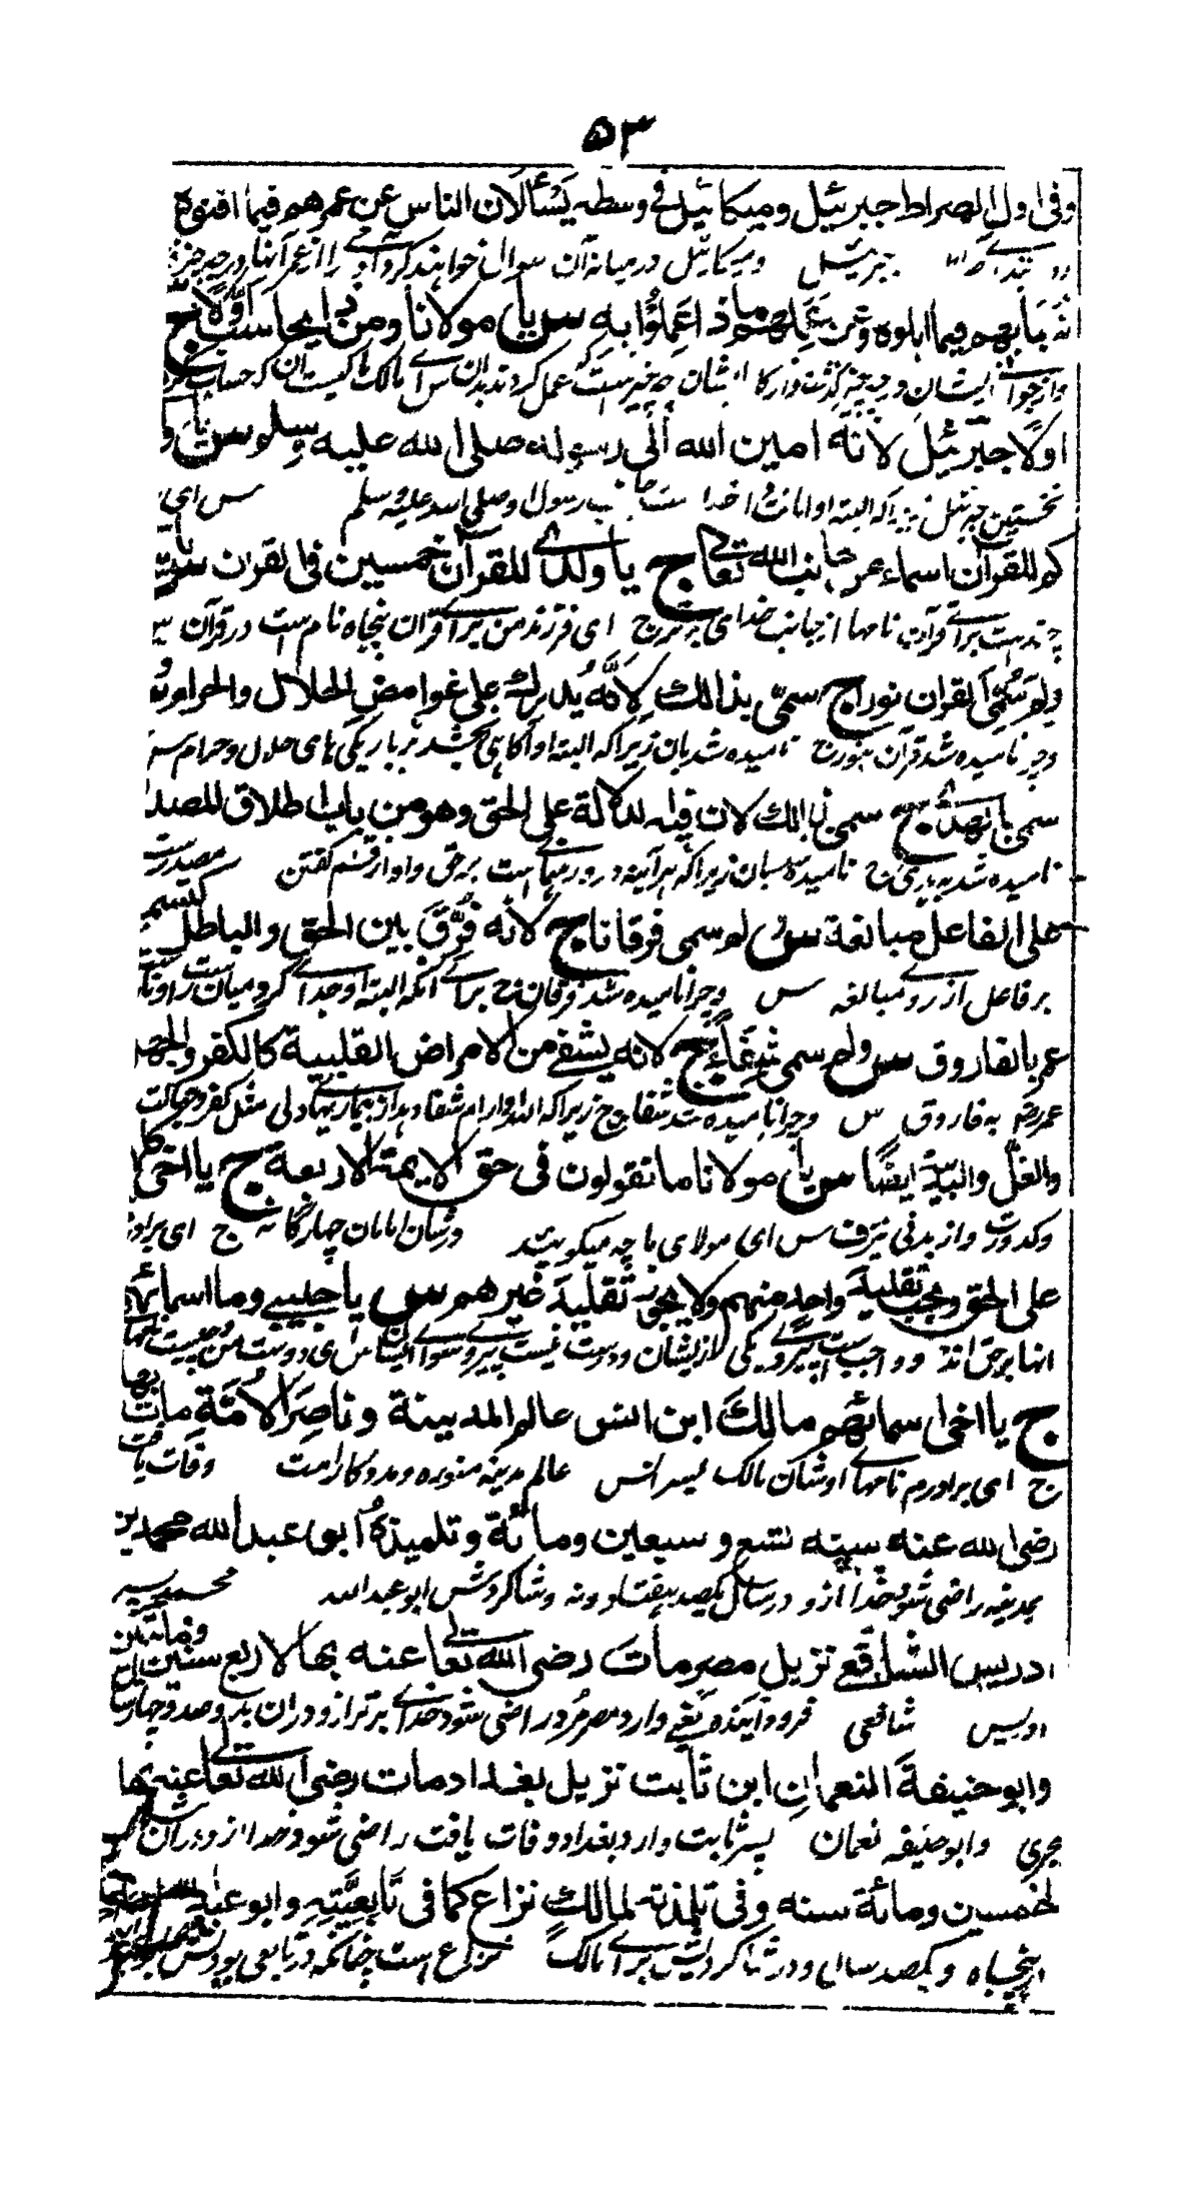 ۵۳
وفی اول الصراط جبرئیل ومیکائیل فی وسطه یسألان الناس عن عمرهم فیما افنوه
جبرئیل ومیکائیل در میانه آن سوال خواهند کرد آدمی را از عمر آنها در چه چیز
فیما ابلوه وعن عملهم ماذا عملوا به س یا مولانا ومن یحاسب اولا ج
ایشان در چه چیز گذشت واز کار ایشان چه چیز است که عمل کردند بدان س ای مالک ما کیست آن که حساب
اولا جبرئیل لانه امین الله الی رسوله صلی الله علیه وسلم س یا
نخستین جبرئیل زیرا که البته او امانت خدا است جانب رسول او صلی الله علیه وسلم س ای
کم للقرآن اسماء من جانب الله تعالی ج یا ولدی للقرآن خمسین فی القرن
چند هست برای قرآن نامها از جانب خدای برتر ج ای فرزند من برای قرآن پنجاه نام است در قرآن
ولم سمی القرآن نورا ج سمی بذالک لانه یدرک علی غوامض الحلال والحرام
وچرا نامیده شد قرآن بنور ج نامیده شد بان زیرا که البته او آگاهی بخشد بر باریکی های حلال وحرام
سمی بالهدی ج سمی بذالک لان فیه لدلالة علی الحق وهو من باب اطلاق المصدر
نامیده شد به هدی ج نامیده شد بان زیرا که هر آینه در و رهنمائی است بر حق واو از قسم گفتن مصدر است
علی الفاعل مبالغة س لم سمی فرقانا ج لانه فرق بین الحق والباطل
بر فاعل از روی مبالغه س وچرا نامیده شد فرقان ج برای آنکه البته او جدائی کرد میان
عمر بالفاروق س ولم سمی شفاء ج لانه یشفی من الامراض القلبیة کالکفر والجهل
عمر به فاروق س وچرا نامیده شد شفا ج زیرا که شفا دهد از بیماریهای دلی مثل کفر و جهالت
والغل والبلیة ایضا س یا مولانا ما تقولون فی حق الایمة الاربعة ج یا اخی کل
وکدورت واز بدنی نیز ف س ای مولای ما چه میگویید در شان امامان چهارگانه ج ای برادر
علی الحق ویجب تقلید واحد منهم ولا یجوز تقلید غیرهم س یا حبیبی وما اسمائهم
انها بر حق اند و واجب است پیروی یکی از ایشان و درست نیست پیروی سوای ایشان س ای دوست من و چیست نامها
ج یا اخی اسمائهم مالک ابن انس عالم المدینة وناصر الامة مات بها
ج ای برادرم نامهای اوشان مالک پسر انس عالم مدینه منوره ومددگار امت وفات یافت
رضی الله عنه سنه تسع و سبعین ومائة وتلمیذه ابو عبد الله محمد بن
بمدینه راضی شود خدا از و در سال یکصد هفتاد ونه وشاگردش ابو عبد الله محمد پسر
ادریس الشافعی نزیل مصر مات رضی الله تعالی عنه بها لاربع سنین ومائتین
ادریس شافعی فرود آینده یعنی وارد مصر مرد راضی شود خدای برتر از و دران بدو صد و چهار سال
وابو حنیفة النعمان ابن ثابت نزیل بغداد مات رضی الله تعالی عنه بها
هجری وابو حنیفه نعمان پسر ثابت وارد بغداد وفات یافت راضی شود خدا از و دران
لخمسین ومائة سنه وفی تلمذته لمالک نزاع کما فی تابعیته وابو عبد الله
پنجاه و یکصد سال و در شاگردیش برای مالک نزاع است چنانکه در تابعی بودنش